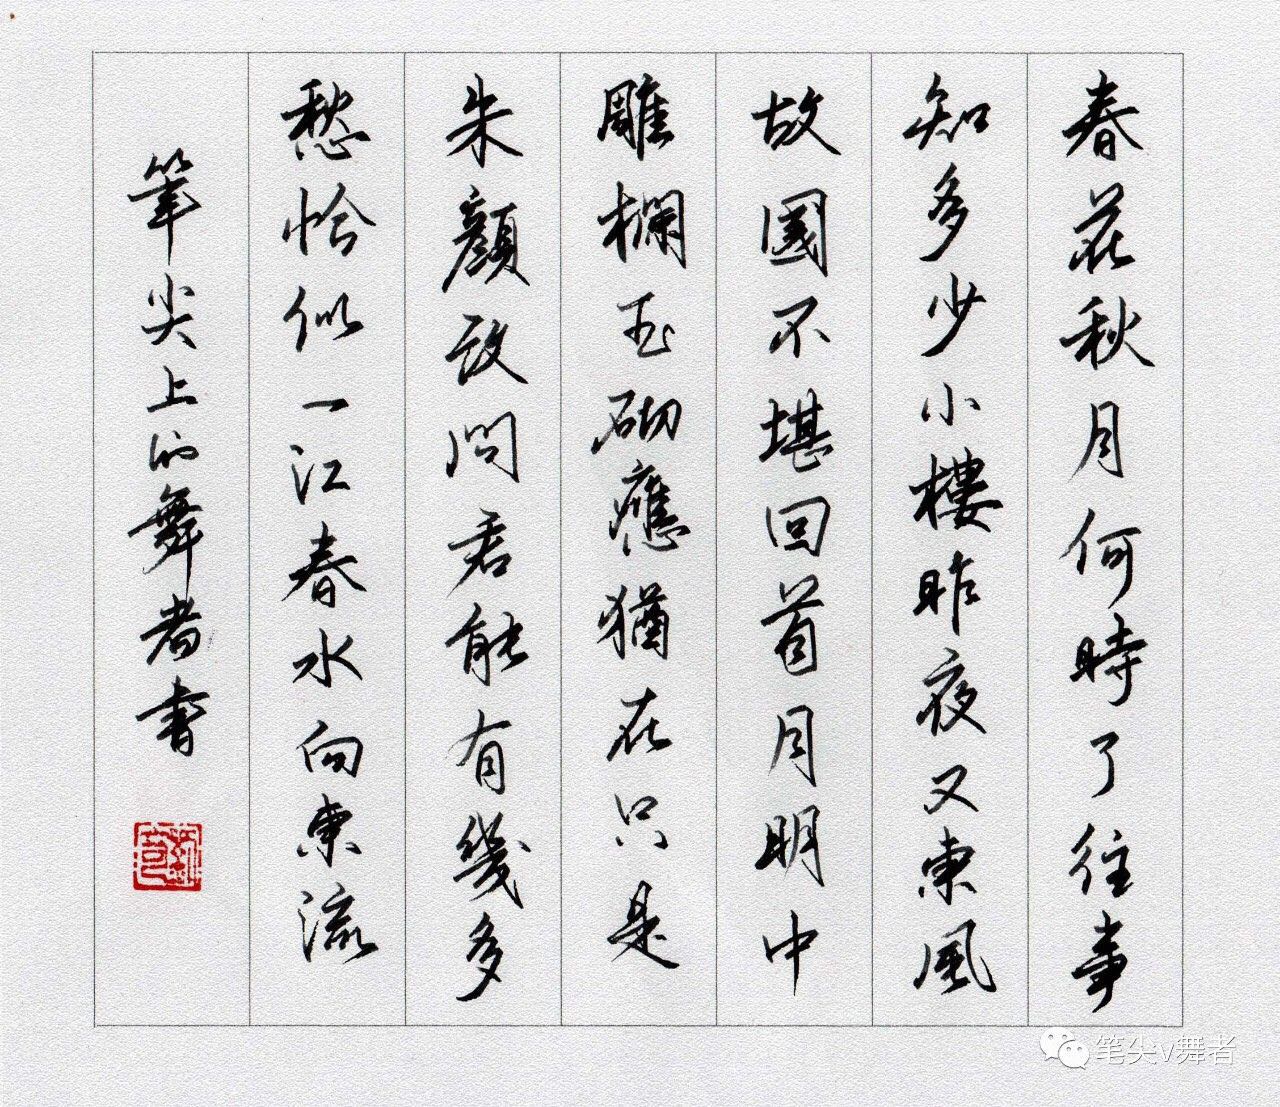 春花秋月何時了往事
知多少小樓昨夜又東風
故國不堪回首月明中
雕欄玉砌應猶在只是
朱顏改問君能有幾多
愁恰似一江春水向東流
筆尖上的舞者書
笔尖v舞者